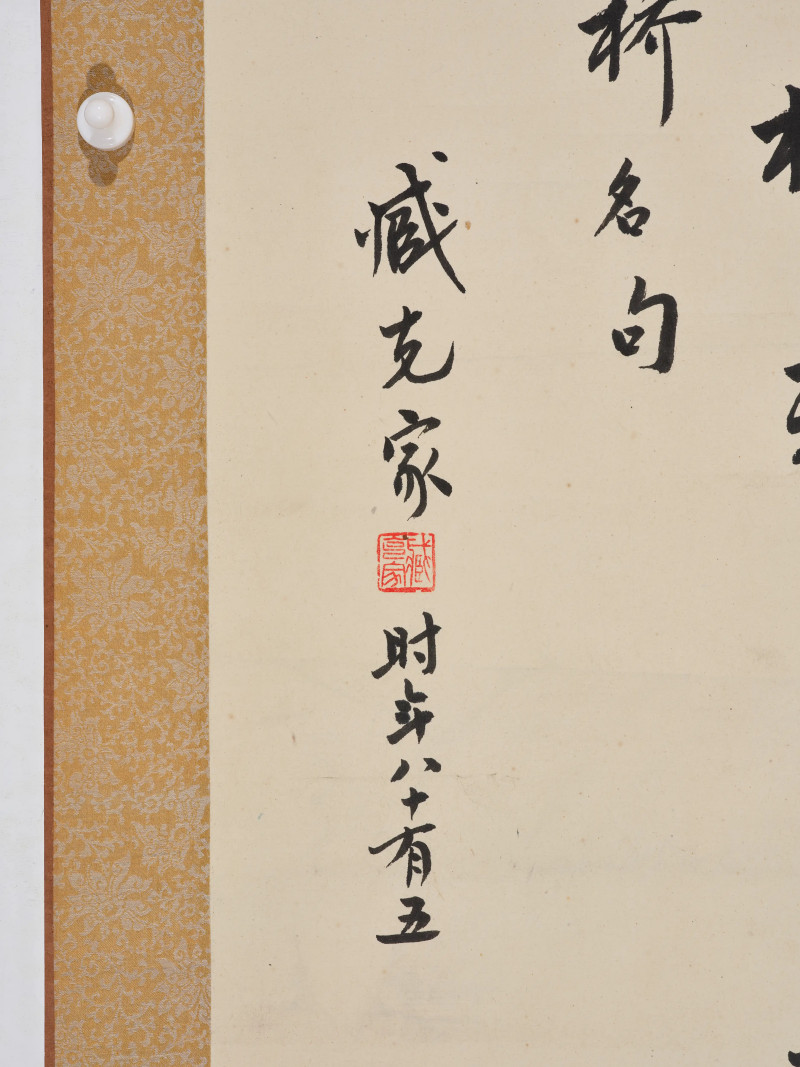 桥名句
臧克家
时年八十有五